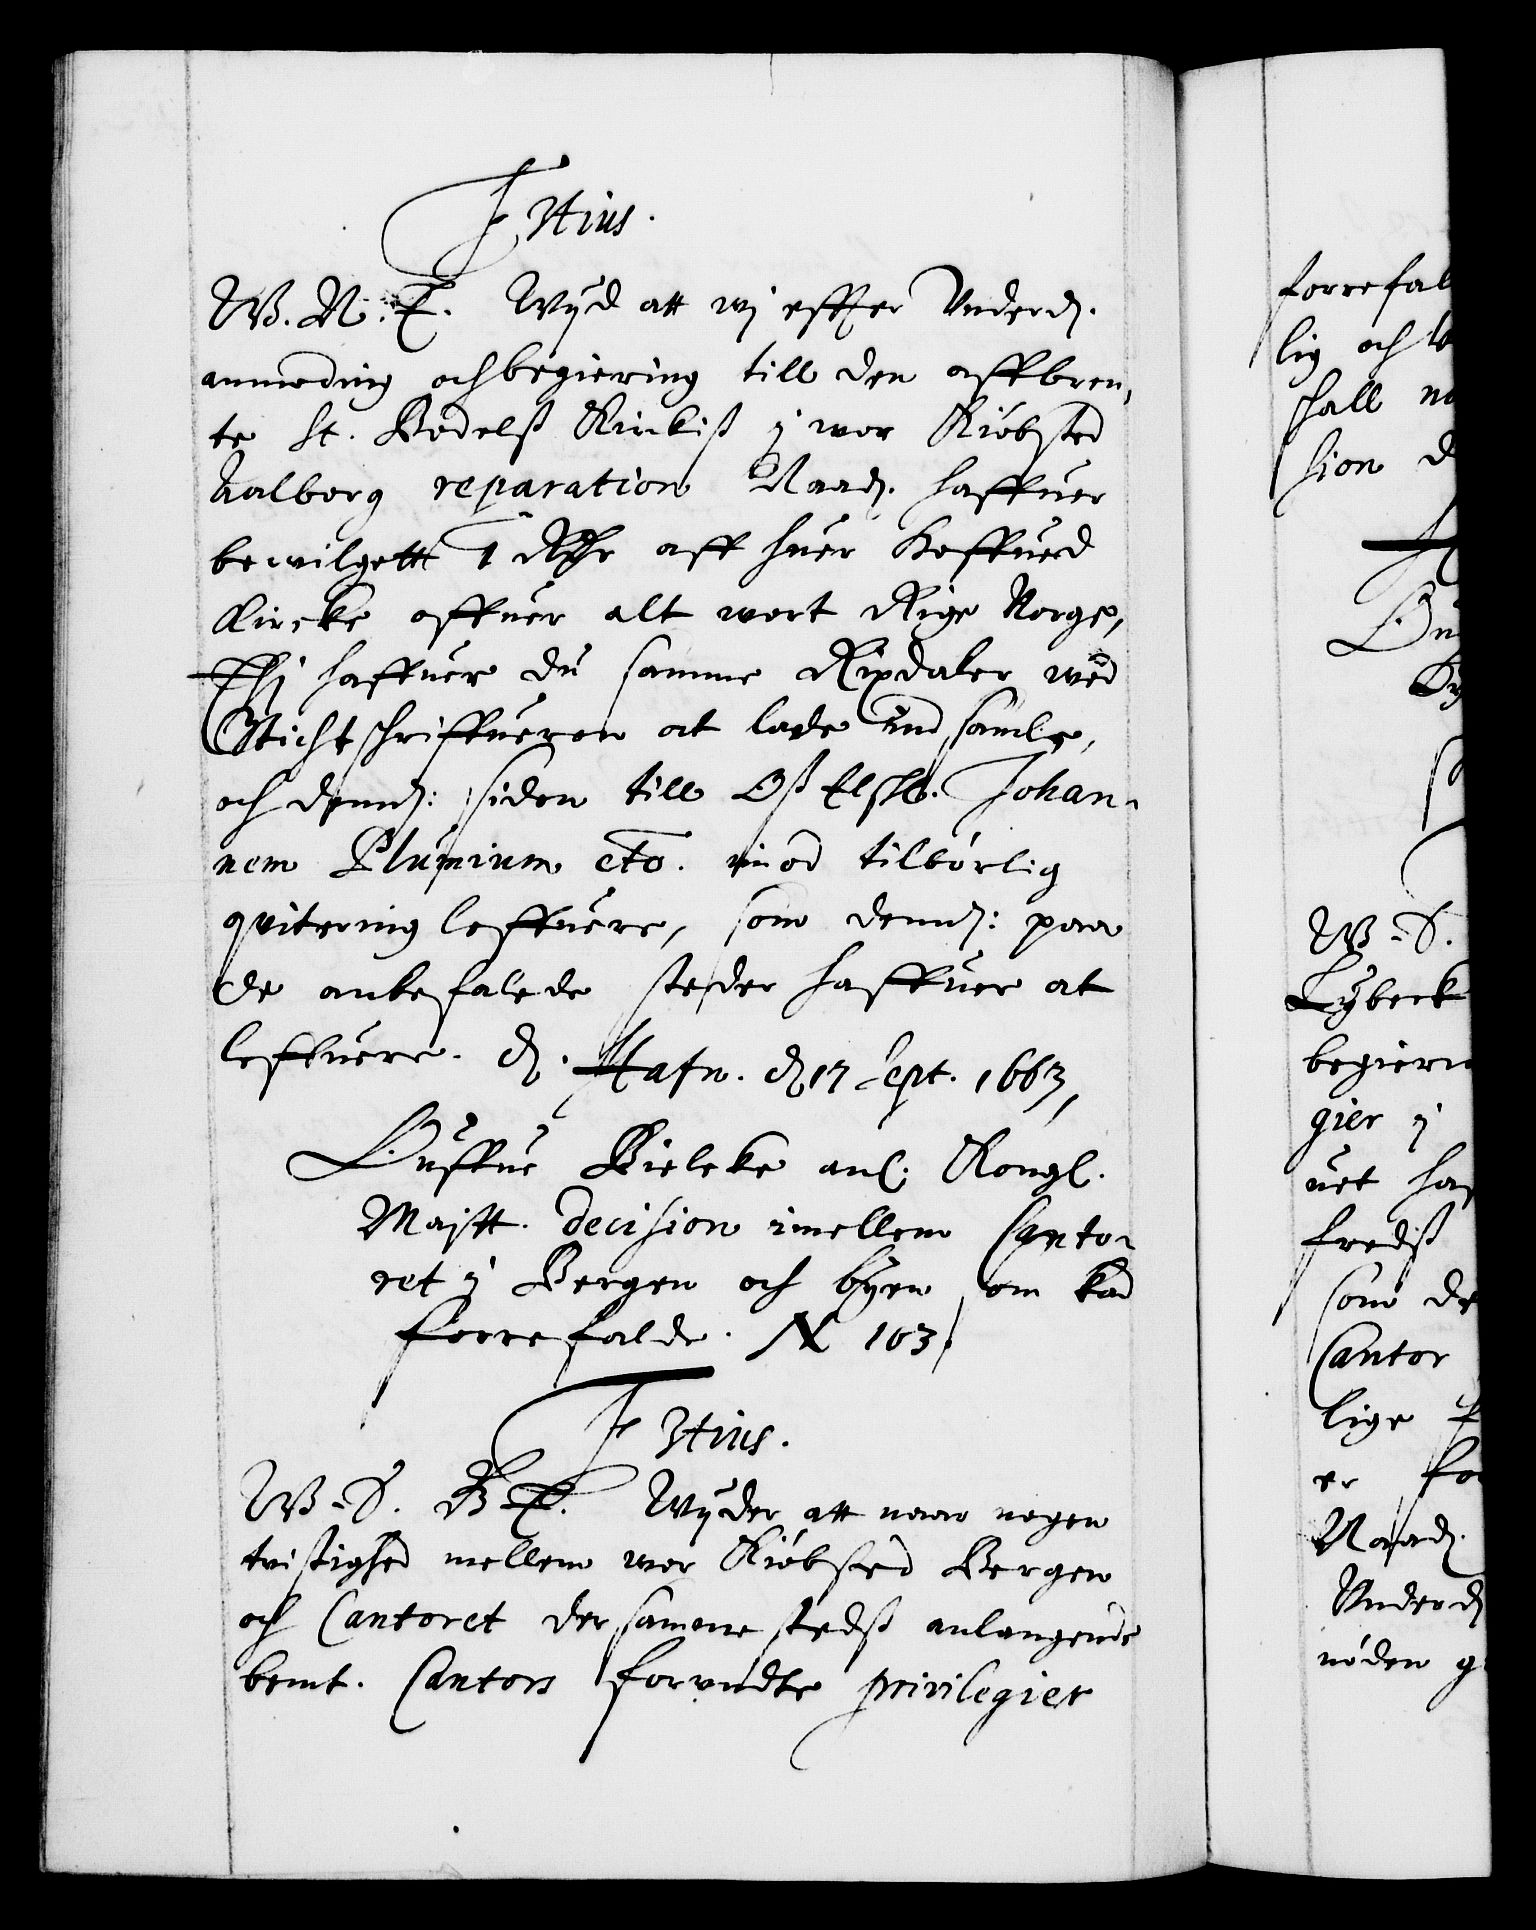 F 3tius.
W. N. T. Wijd att wj effter Underd.
anmoding och begiering till den affbren,
te St. Bodelß Kirckiß i wor Kiøbsted
Aalborg reparation Naad. haffuer
bewilgett 1 Rdr aff huer Hoffued
Kircke offuer alt wort Rige Norge,
Thj haffuer du samme Rixdaler wed
Stichtschriffueren at lade ind samle,
och dennd: siden till Oß Elschl. Johan-
nem Plumium etc. imod tilbørlig
qvitering leffuere, som dennd: paa
de anbefalede steder haffuer at
leffuere. d. Hafn. d 17 Sept. 1663,
Ouffue Bielcke anl. Kongl.
Maistt. decision imellem Canto-
ret i Bergen och byen, om huad
forrefalde. N 103.
F 3tius.
W. S. B T. Wijder att naar nogen
tvistighed mellem wor Kiøbsted Bergen
och Cantoret der sammestedß anlangende
bemt. Cantors forundte privilegier
forrefal
lig och
shall
sion d
Ou
W. S.
Lybeck
begieri
gier i
uet haf
fredß
som de
Cantor
lige
er fo
Naad.
Underd
nøden g